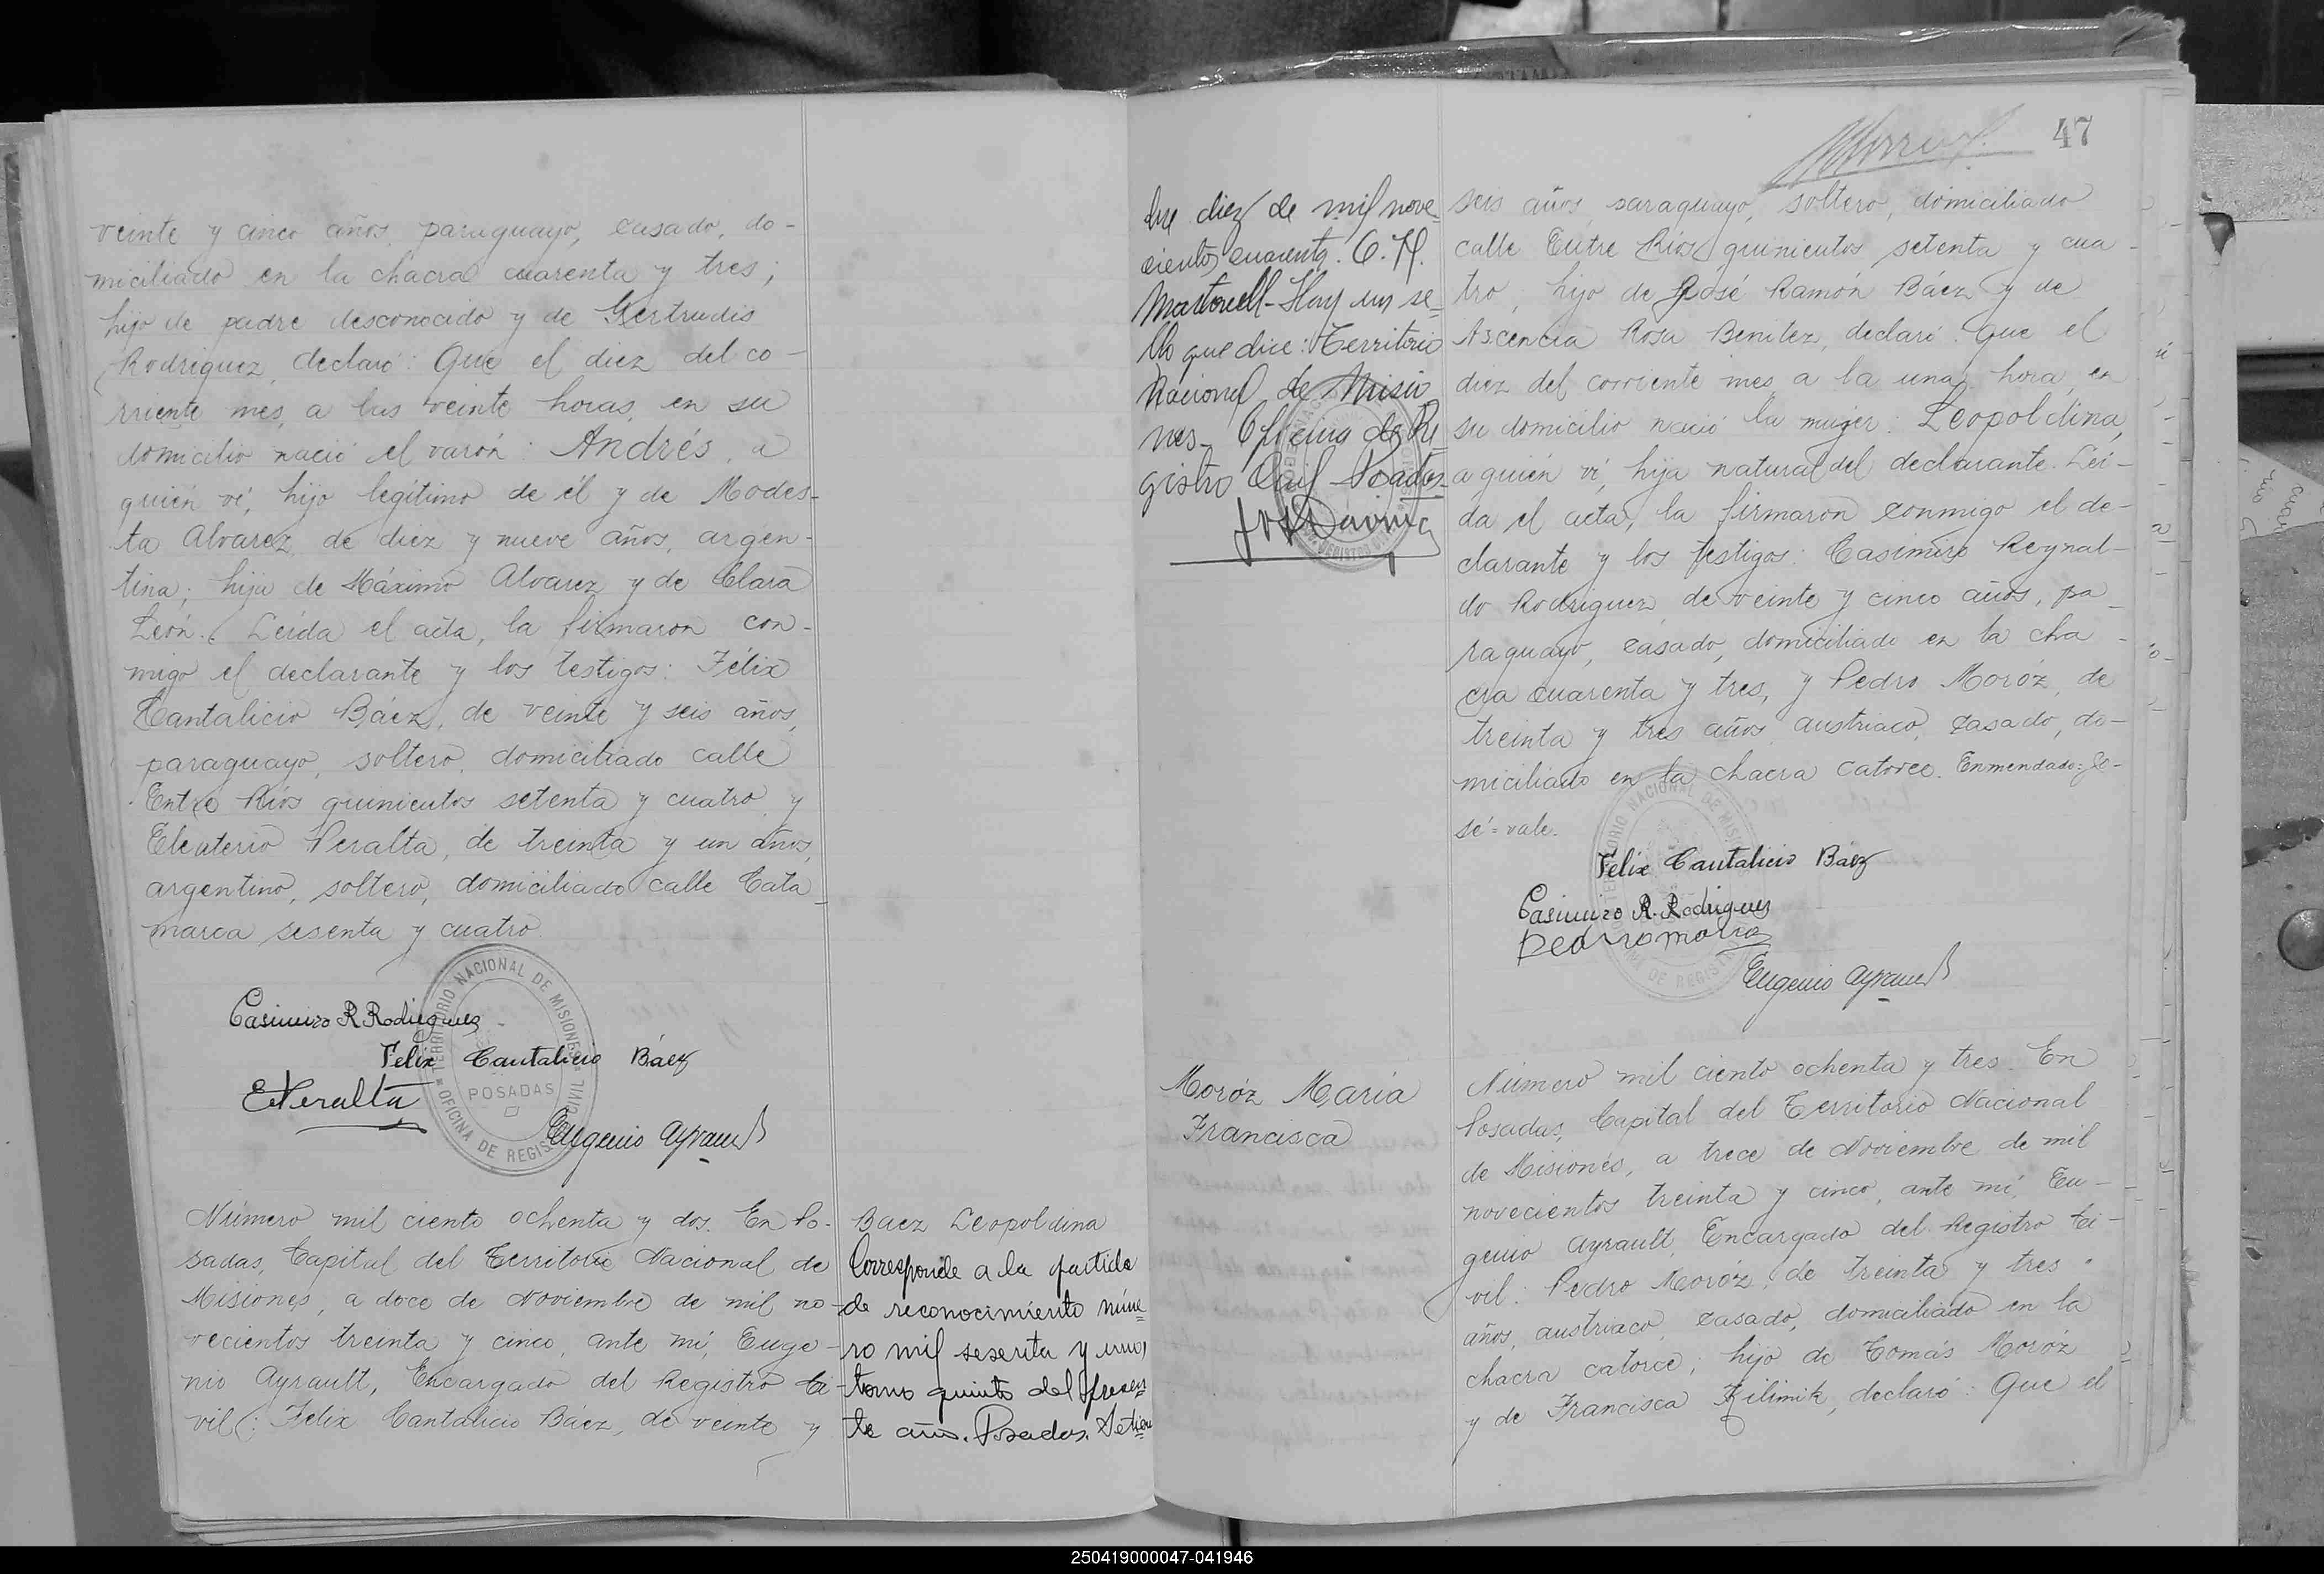 veinte y cinco años, paraguayo, casado, do-
miciliado en la chacra cuarenta y tres;
hijo de padre desconocido y de Gertrudis
Rodriguez, declaró: Que el diez del co-
rriente mes, a las veinte horas, en su
domicilio nació el varón: Andrés, a
quién ví, hijo legítimo de él y de Modes-
ta Alvarez, de diez y nueve años, argen-
tina; hija de Máximo Alvarez y de Clara
León. Leída el acta, la firmaron con-
migo el declarante y los testigos: Félix
Cantalicio Báez, de veinte y seis años,
paraguayo, soltero, domiciliado calle
Entre Ríos quinientos setenta y cuatro, y
Eleuterio Peralta, de treinta y un años,
argentino, soltero, domiciliado calle Cata-
marca sesenta y cuatro.
Casimiro R Rodriguez
Felix Cantalicio Báez
E Peralta
Eugenio Ayrault
TERRITORIO NACIONAL DE MISIONES
POSADAS
OFICINA DE REGISTRO CIVIL
Número mil ciento ochenta y dos. En Po-
sadas, Capital del Territorio Nacional de
Misiones, a doce de Noviembre de mil no-
vecientos treinta y cinco, ante mí, Euge-
nio Ayrault, Encargado del Registro Ci-
vil: Felix Cantalicio Báez, de veinte y
Baez Leopoldina
Corresponde a la partida
de reconocimiento núme=
ro mil sesenta y uno,
tomo quinto del presen=
te año. Posadas, Setiem=
47
bre diez de mil nove-
cientos cuarenta. C. H.
Martorell - Hay un se=
llo que dice: Territorio
Nacional de Misio
nes - Oficina de Re
gistro Civil - Posadas
seis años, paraguayo, soltero, domiciliado
calle Entre Ríos quinientos setenta y cua-
tro; hijo de José Ramón Báez y de
Ascencia Rosa Benitez, declaró: Que el
diez del corriente mes a la una hora, en
su domicilio nació la mujer: Leopoldina,
a quién ví, hija natural del declarante. Leí-
da el acta, la firmaron conmigo el de-
clarante y los testigos: Casimiro Reynal-
do Rodriguez, de veinte y cinco años, pa-
raguayo, casado, domiciliado en la cha-
cra cuarenta y tres, y Pedro Moróz, de
treinta y tres años, austriaco, casado, do-
miciliado en la chacra catorce. Enmendado: Jo-
sé = vale.
Felix Cantalicio Báez
Casimiro R. Rodriguez
Pedro Moroz
Eugenio Ayrault
Moróz María
Francisca
Número mil ciento ochenta y tres. En
Posadas, Capital del Territorio Nacional
de Misiones, a trece de Noviembre de mil
novecientos treinta y cinco, ante mí, Eu-
genio Ayrault, Encargado del Registro Ci-
vil: Pedro Moróz, de treinta y tres
años, austriaco, casado, domiciliado en la
chacra catorce; hijo de Tomás Moróz
y de Francisca Kilimik, declaró: Que el
250419000047-041946